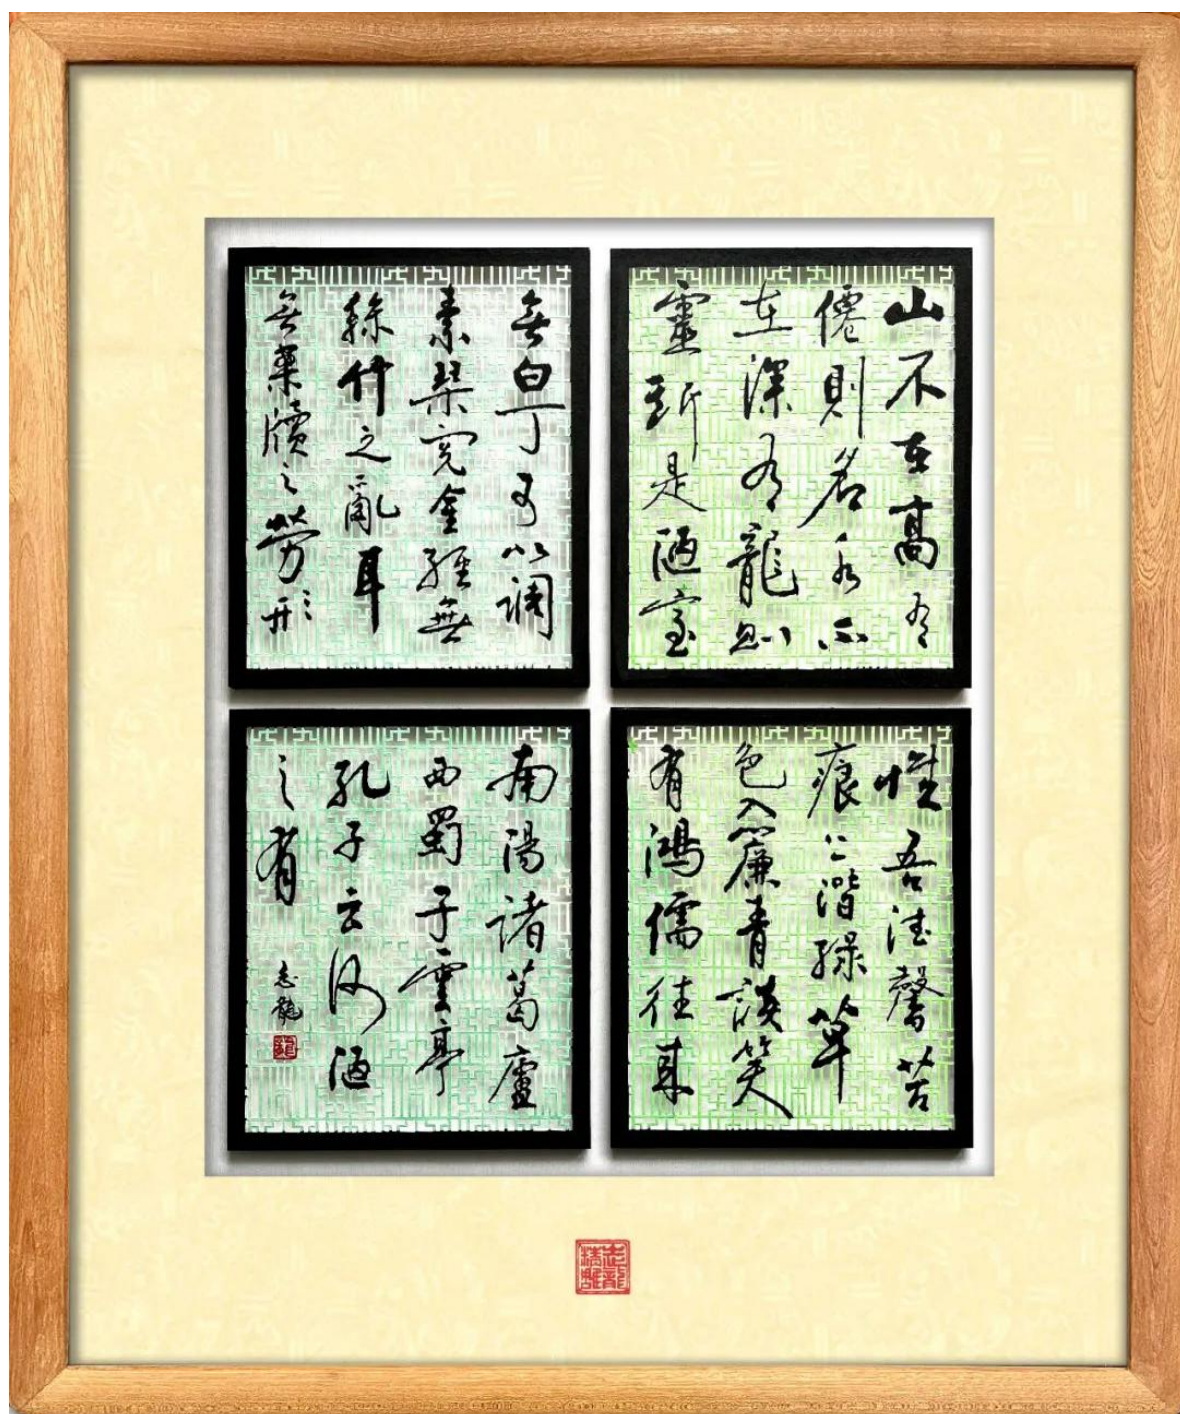 山不在高有
僊則名水不
在深有龍則
靈斯是陋室
惟吾德馨苔
痕上階綠草
色入簾青談笑
有鴻儒往來
無白丁可以調
素琴閱金經無
絲竹之亂耳
無案牘之勞形
南陽諸葛廬
西蜀子雲亭
孔子云何陋
之有
志龍
志龍精雕